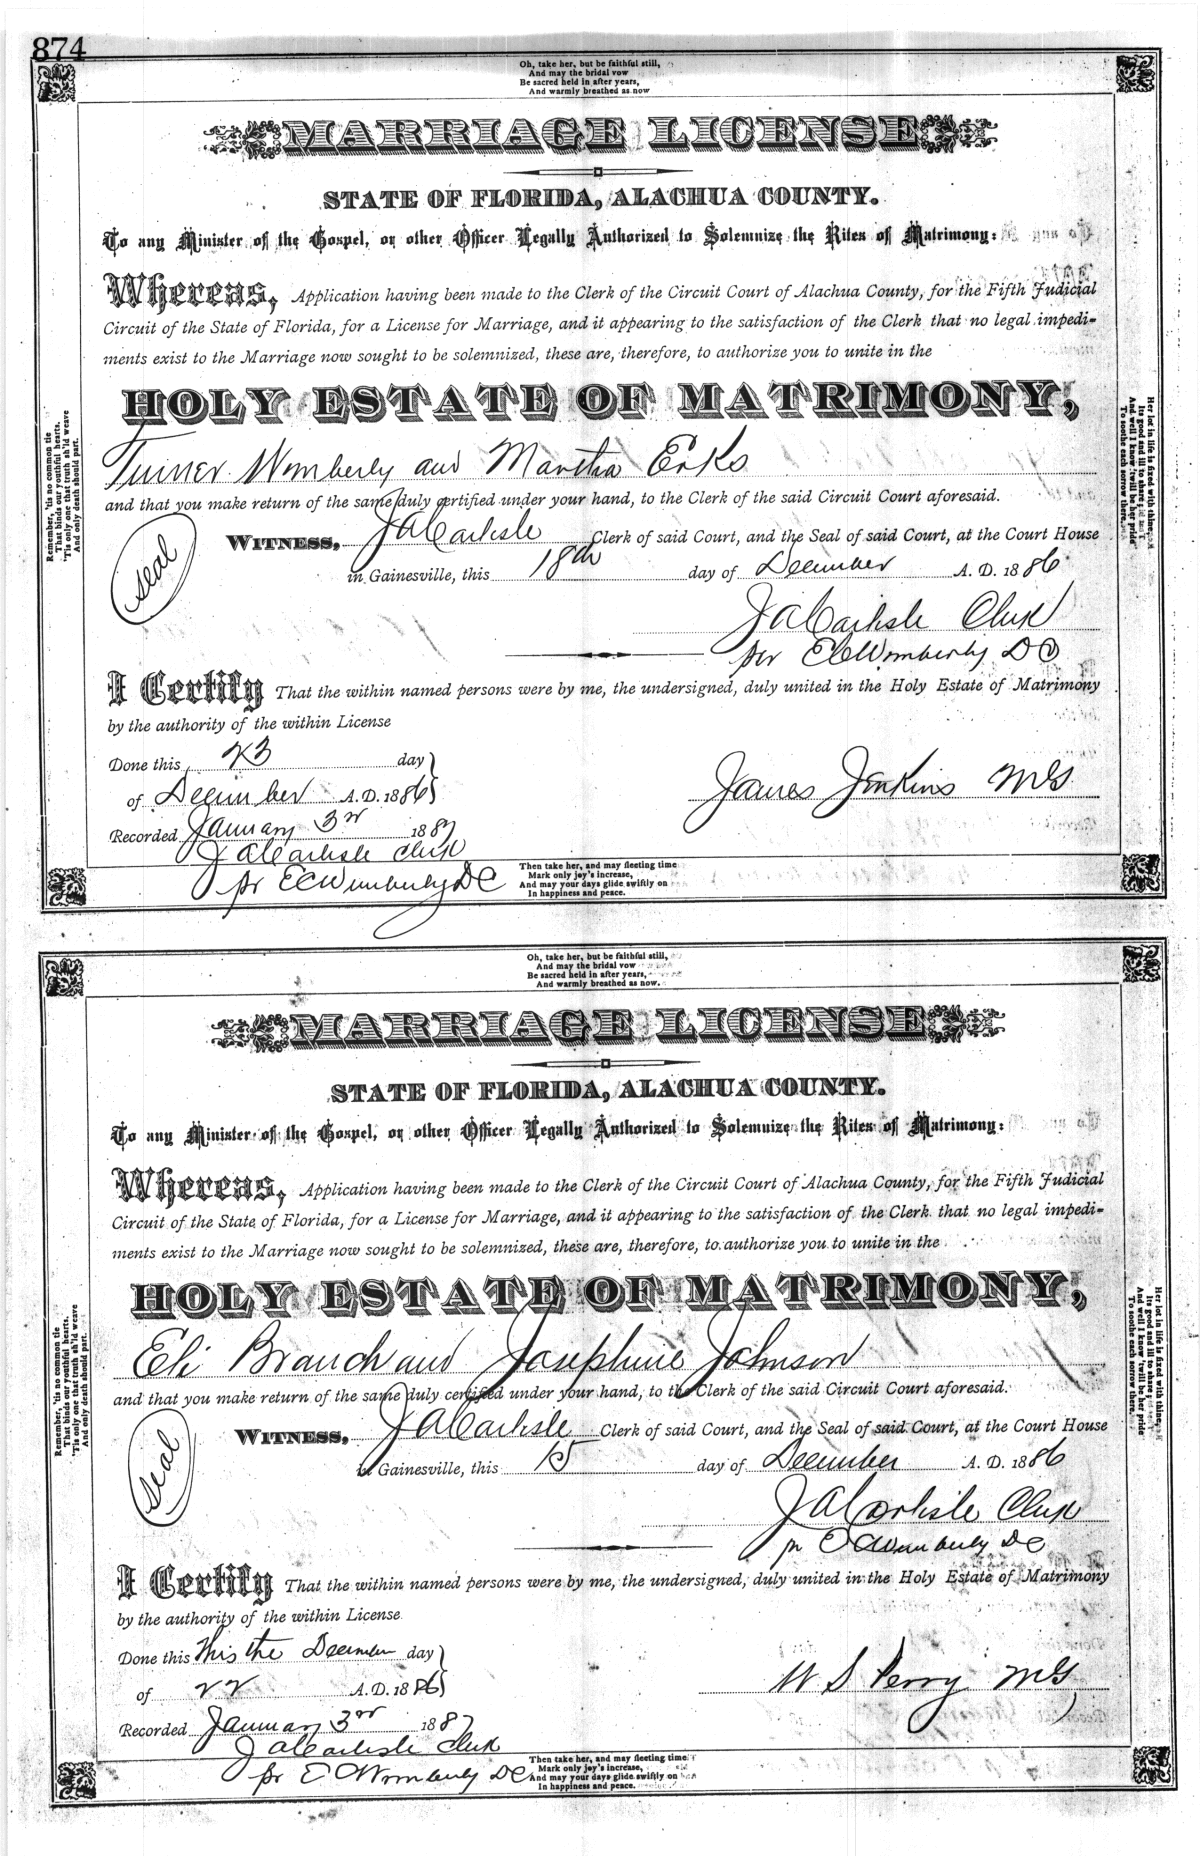 874
Oh, take her, but be faithful still,
And may the bridal vow
Be sacred held in after years,
And warmly breathed as now
MARRIAGE LICENSE
STATE OF FLORIDA, ALACHUA COUNTY.
To any Minister of the Gospel, or other Officer Legally Authorized to Solemnize the Rites of Matrimony:
Whereas, Application having been made to the Clerk of the Circuit Court of Alachua County, for the Fifth Judicial
Circuit of the State of Florida, for a License for Marriage, and it appearing to the satisfaction of the Clerk that no legal impedi-
ments exist to the Marriage now sought to be solemnized, these are, therefore, to authorize you to unite in the
HOLY ESTATE OF MATRIMONY,
Turner Wimberly and Martha Erks
and that you make return of the same duly certified under your hand, to the Clerk of the said Circuit Court aforesaid.
WITNESS, J A Carlisle Clerk of said Court, and the Seal of said Court, at the Court House
seal
in Gainesville, this 18th day of December A. D. 1886
J A Carlisle Clerk
per E C Wimberly D C
I Certify That the within named persons were by me, the undersigned, duly united in the Holy Estate of Matrimony
by the authority of the within License
Done this 23 day
of December A.D. 1886
James Jenkins M G
Recorded January 3rd 1887
J A Carlisle Clerk
pr E C Wimberly D C
Then take her, and may fleeting time
Mark only joy's increase,
And may your days glide swiftly on
In happiness and peace.
Remember, 'tis no common tie
That binds our youthful hearts.
'Tis only one that truth sh'ld weave
And only death should part.
Her lot in life is fixed with thine,
Its good and ill to share
And well I know 'twill be her pride
To soothe each sorrow there.
Oh, take her, but be faithful still,
And may the bridal vow
Be sacred held in after years,
And warmly breathed as now.
MARRIAGE LICENSE
STATE OF FLORIDA, ALACHUA COUNTY.
To any Minister of the Gospel, or other Officer Legally Authorized to Solemnize the Rites of Matrimony:
Whereas, Application having been made to the Clerk of the Circuit Court of Alachua County, for the Fifth Judicial
Circuit of the State of Florida, for a License for Marriage, and it appearing to the satisfaction of the Clerk that no legal impedi-
ments exist to the Marriage now sought to be solemnized, these are, therefore, to authorize you to unite in the
HOLY ESTATE OF MATRIMONY,
Eli Branch and Josephine Johnson
and that you make return of the same duly certified under your hand, to the Clerk of the said Circuit Court aforesaid.
WITNESS, J A Carlisle Clerk of said Court, and the Seal of said Court, at the Court House
seal
in Gainesville, this 15 day of December A. D. 1886
J A Carlisle Clerk
pr E C Wimberly D C
I Certify That the within named persons were by me, the undersigned, duly united in the Holy Estate of Matrimony
by the authority of the within License
Done this this the December day
of 22 A.D. 1886
W S Perry M G
Recorded January 3rd 1887
J A Carlisle Clerk
pr E C Wimberly D C
Then take her, and may fleeting time
Mark only joy's increase,
And may your days glide swiftly on
In happiness and peace.
Remember, 'tis no common tie
That binds our youthful hearts.
'Tis only one that truth sh'ld weave
And only death should part.
Her lot in life is fixed with thine,
Its good and ill to share
And well I know 'twill be her pride
To soothe each sorrow there.